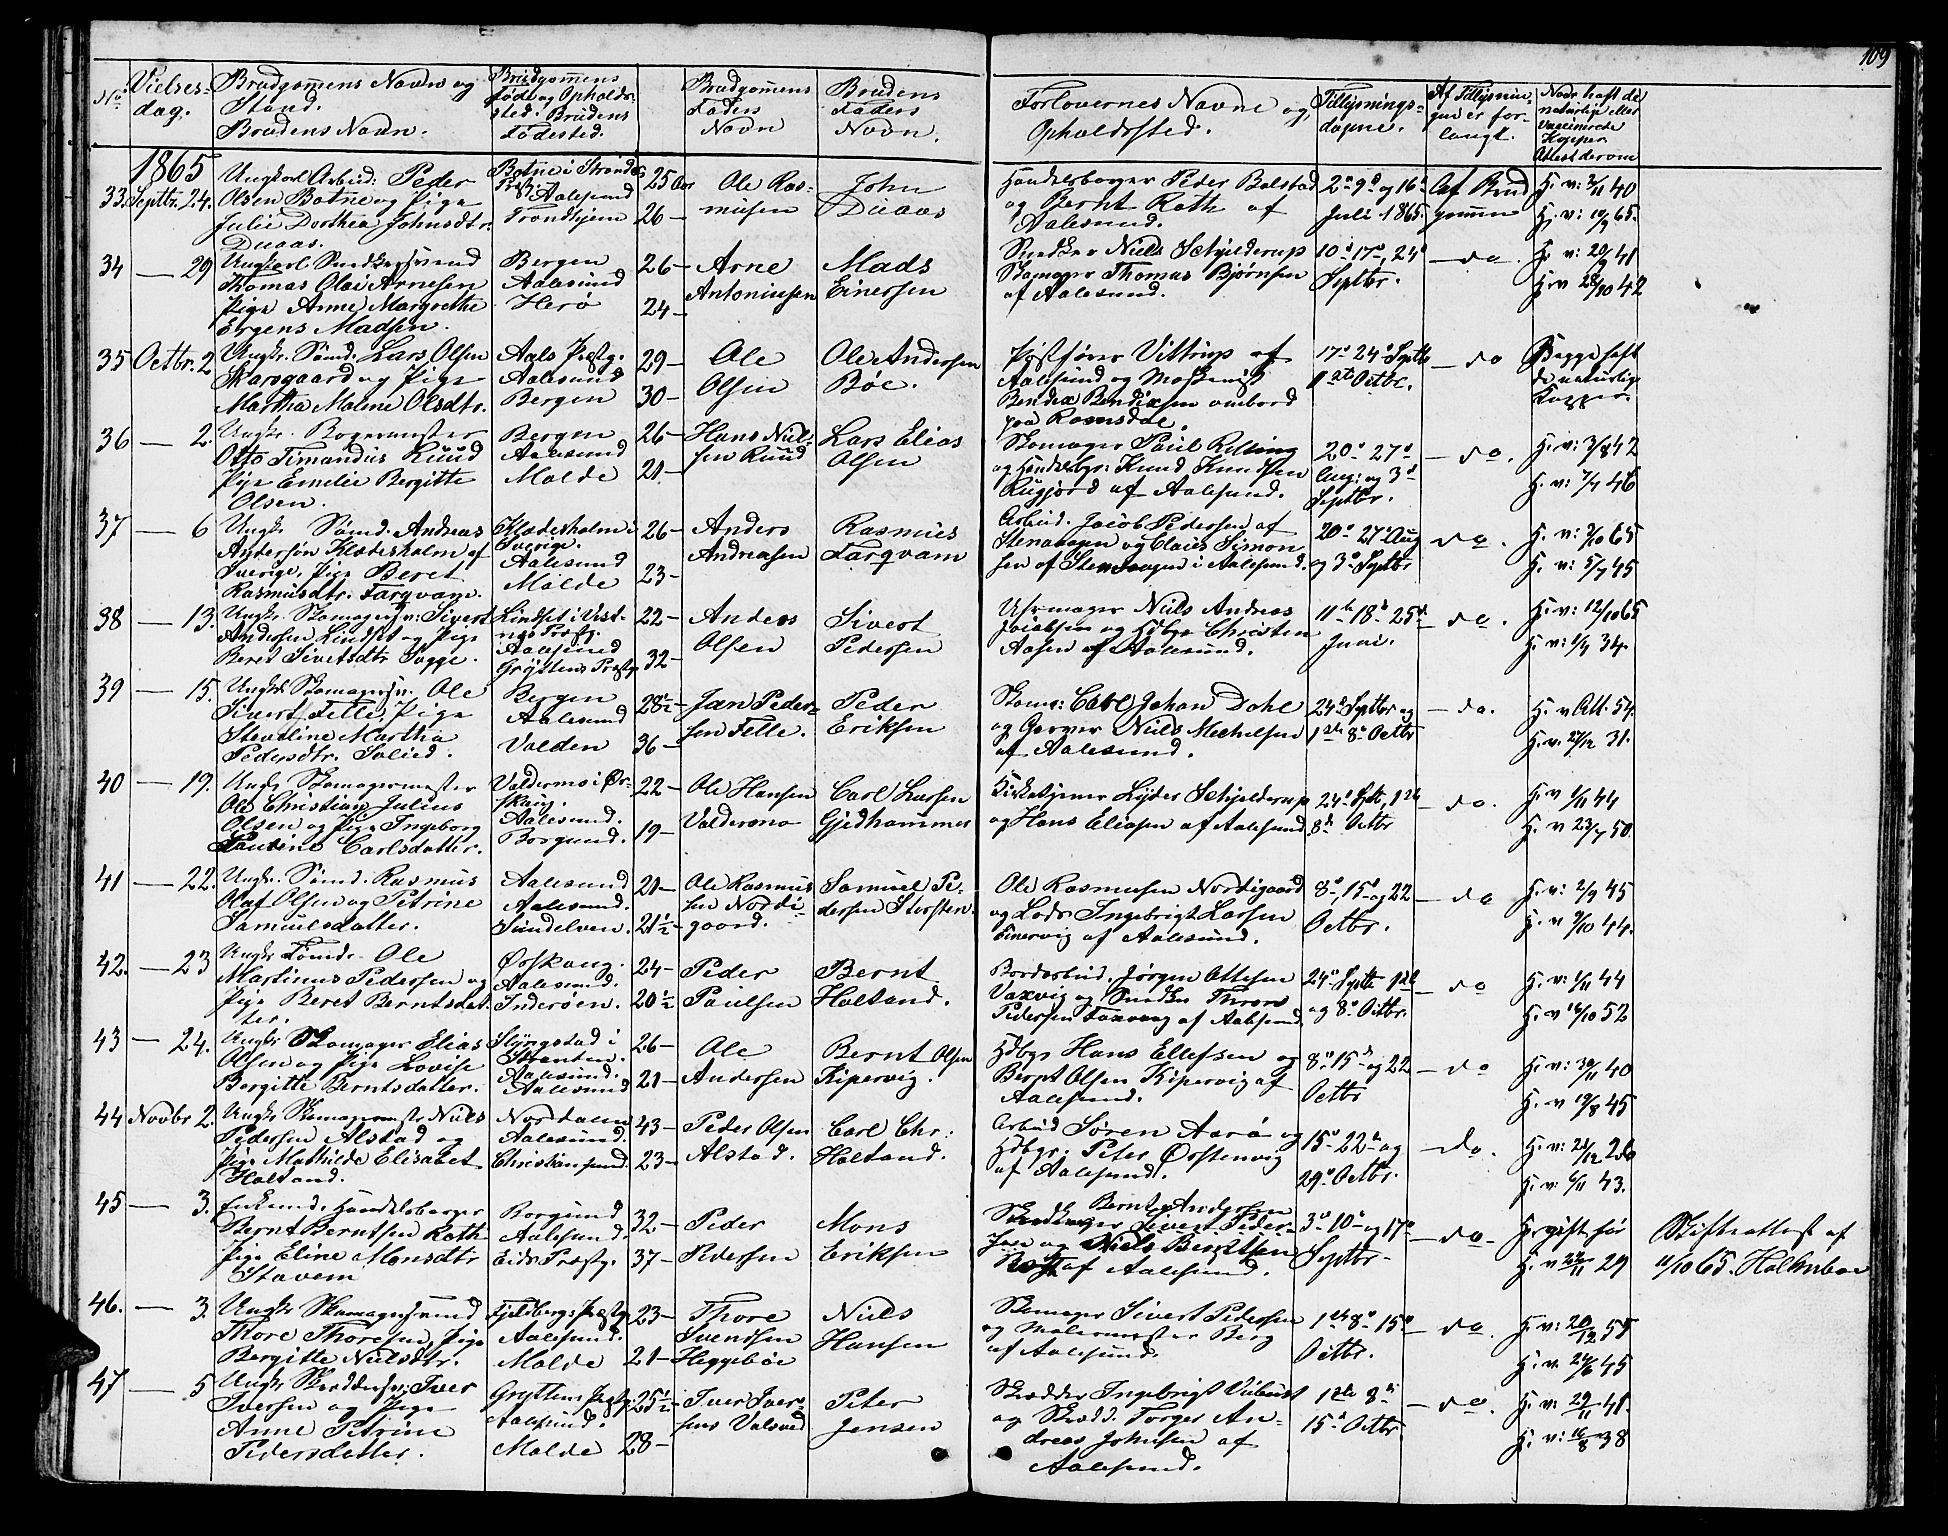 109
No. Vielses- dag. Brudgomens Navn og Stand. Brudens Navn. Brudgomens Føde og Opholds- sted. Brudens Fødested. Brudgomens Faders Navn Brudens Faders Navn. Forlovernes Navne og Opholdssted. Tillysnings- dagene. Af Tillysnin- gen er for- langt. Naar haft de naturlige eller Vaccinerede Kopper Attest derom
1865
33. Septbr. 24. Ungkarl Arbeid: Peder Olsen Botne og Pige Julie Dorthea Johnsdtr. Duaas. Botne i Strandens Aalesund Trondhjem 25 Aar 26 - Ole Ras- musen John Duaas Handelsborger Peder Bolstad og Bernt Rath af Aalesund. 2d 9d og 16d Juli 1865. Af Brud gomen H. v: 2/11 40 H. v: 19/9 65.
34 — 29 Ungkarl Snedkersvend Thomas Olai Arnesen Pige Anne Margrethe Madsen. Bergen Aalesund Herø 26 - 24 - Arne Antoniusen Mads Einersen Snedker Niels Schjelderup Skomager Thomas Bjørnsen af Aalesund. 10d 17d, 24d Septbr. — do. H. v: 20/9 41 H. v 28/10 42
35 Octbr. 2 Ungkr. Sømd. Lars Olsen Skarsgaard og Pige Martha Malene Olsdtr. Aals Præstg. Aalesund Bergen 29 - 30 - Ole Olsen Ole Andersen Bøe. Vittrup af Aalesund og Maskenist Bendix Bendixsen ombord paa Romsdal. 17d 24d Septbr 1ste Octbr. — do Begge haft de naturlige Kopper.
36 — 2. Ungkr. Bagermester Otto Timandus Ruud Pige Emelie Bergitte Olsen. Bergen Aalesund Molde 26 - 21 - Hans Niel- sen Ruud Lars Elias Olsen Skomager Paul Relling og Handelsbgr: Knud Knudsen af Aalesund. 20d 27d Aug: og 3d Septbr. — do. H. v: 3/8 42 H. v: 7/7 46
37 — 6 Ungkr Sømd. Andreas Andersøn Klædesholm af Sverige, Pige Beret Rasmusdtr. Farqvam. Klædesholm i Sverige. Aalesund Molde 26 - 23 - Anders Andreasen Rasmus Farqvam Arbeid. Jacob Pedersen af Stenvaagen og Claus Simon- sen af Stenvaagen i Aalesund. 20d 27d Aug og 3d Septbr do. H. v: 2/10 65 H. v: 5/7 45
38 — 13. Ungkr. Skomagersv: Sivert Andersen Lindset og Pige Beret Sivertsdtr Sogge. Lindset i Vest- nes Præstg. Aalesund Gryttens Præstg 22 - 32 - Anders Olsen Sivert Pedersen Uhrmager Niels Andreas Jacobsen og Hdbgr Christen Aasen af Aalesund. 11te 18d 25d Juni. — do. H. v: 12/10 65 H. v: 1/7 34.
39 — 15. Ungkr. Skomagersv. Ole Sivert Felle, Pige Steveline Martha Pedersdtr. Solied. Bergen Aalesund Volden 28½ 36 - Jan Peder- sen Felle. Peder Eriksen Skom: Carl Johan Dahl og Garver Niels Mechelsen af Aalesund. 24d Septbr og 1ste 8d Octbr — do. H. v Att. 54. H. v. 27/12 31.
40 — 19. Ungkr Skomagermester Ole Christian Julius Olsen og Pige Ingeborg Laurine Carlsdatter. Valdermo i Ør- skoug. Aalesund. Borgund. 22 - 19 - Ole Hansen Valdermo Carl Larsen Gjedhammer Kirketjener Lyder Schjelderup og Hans Eliasen af Aalesund 24d Septbr, 1ste 8d Octbr — do. H. v 1/11 44 H. v 23/7 50.
41 — 22. Ungkr. Sømd. Rasmus Olaf Olsen og Petrine Samuelsdatter. Aalesund Aalesund. Sundelven. 21 - 21½ Ole Rasmus- sen Nordi- gaard. Samuel Pe- dersen Ole Rasmusen Nordigaard og Lods Ingebrigt Larsen af Aalesund. 8d, 15d og 22 Octbr. — do H. v: 2/9 45 H. v 9/10 44.
42. — 23 Ungkr Sømd. Ole Martinus Pedersen og Pige Beret Berntsdat- ter. Ørskoug. Aalesund. Inderøen. 24 - 20½ Peder Paulsen Bernt Holtand. Jørgen Ottesen Vaxvig og Snedker Thron Pedersen af Aalesund 24d Septbr 1ste og 8d Octbr. — do H. v: 1/11 44 H. v 16/10 52
43 — 24. Ungkr Skomager Elias Olsen og Pige Lovise Bergitte Berntsdatter. Slyngstad i Stranden. Aalesund. Aalesund 26 - 21 - Ole Andersen Bernt Olsen Kipervig. Hdbgr Hans Ellefsen og Bernt Olsen Kipervig af Aalesund. 8d 15d og 22 Octbr — do H. v: 30/11 40 H. v 19/8 45
44 Novbr 2. Ungkr Skomagermestr Niels Pedersen Alstad og Pige Mathilde Elisabet Holtand. Nordalen Aalesund. Christiansund. 43 - 23 - Peder Olsen Alstad. Carl Chr: Holtand. Arbeid Søren Aarø og Hdbgr: Peter Ørstenvig af Aalesund. 15d 22d og 29d Octbr. — do. H. v: 21/12 20 H. v: 6/11 43.
45 — 3. Enkemd. Handelsborger Bernt Berntsen Rath Pige Eline Monsdtr Stavem Borgund Aalesund. Eids Præstg. 32 - 37 - Peder Pedersen Mons Eriksen Bernt Andersen Sivert Peder- sen og Niels Berntsen af Aalesund. 3d 10d og 17d Septbr. — do. H. gift før H. v 22/11 29 Skifteattest af 11/10 65. Holmboe
46. — 3. Ungkr Skomagersvend Thore Thoresen, Pige Bergitte Nielsdtr. Fjelbergs Præstg Aalesund. Molde 23 - 21 - Thore Svendsen Heggebøe Niels Hansen Skomager Sivert Pedersen og Malermester Berg af Aalesund. 1ste 8d 15d Octbr. — do. H. v: 20/12 55 H. v. 24/6 45
47 — 5 Ungkr Skreddersv: Iver Iversen og Pige Anne Petrine Pedersdatter. Gryttens Præstg. Aalesund. Molde 25½ 28 - Iver Iver- sens Valsæd Peter Jensen Skredder Ingebrigt Viebust og Skredd. Torger An- dreas Johnsen af Aalesund. 1ste 8d 15d Octbr — do. H. v: 29/11 41. H. v: 16/8 38